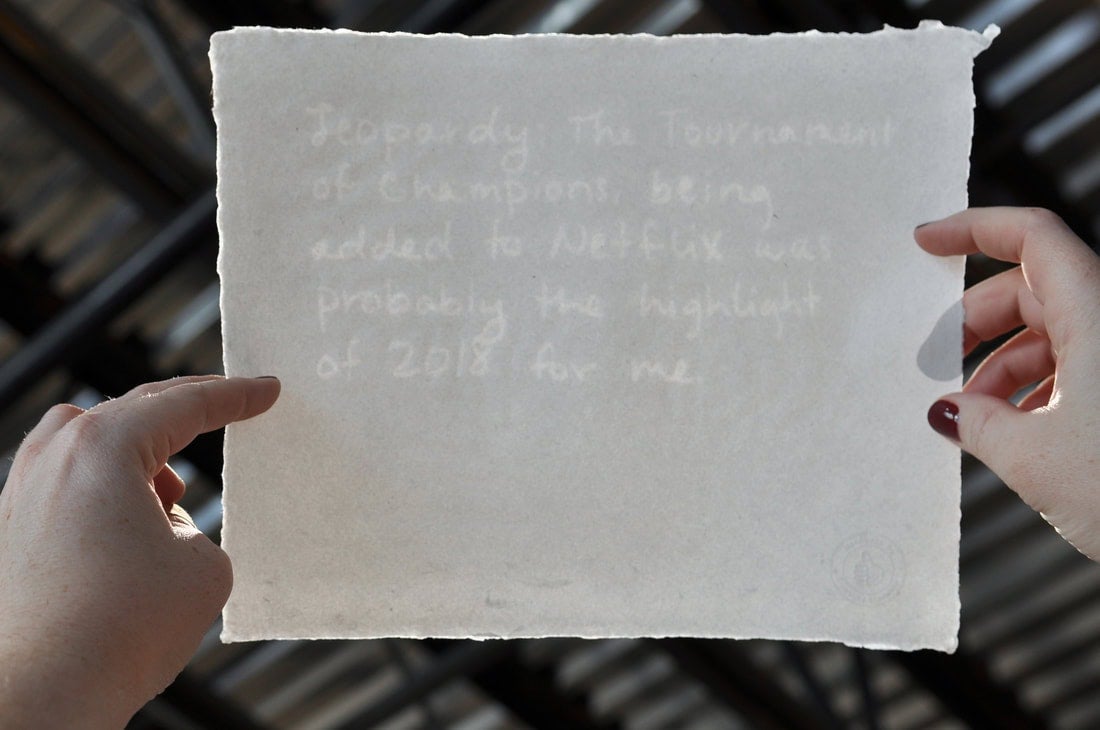 Jeopardy: The Tournament
of Champions, being
added to Netflix was
probably the highlight
of 2018 for me